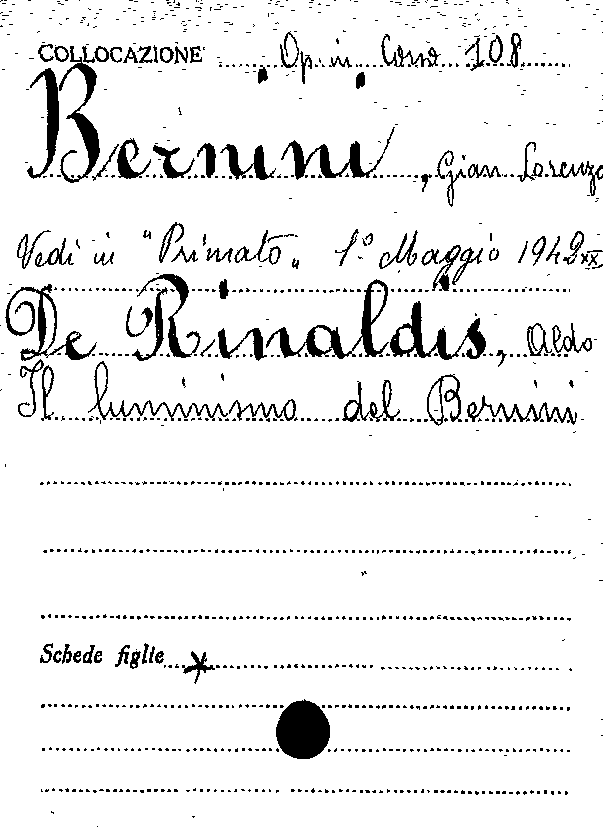 COLLOCAZIONE Op. in Corso 108
Bernini, Gian Lorenzo
Vedi in "Primato" 1° Maggio 1942 XX
De Rinaldis, Aldo
Il luminismo del Bernini
Schede figlie